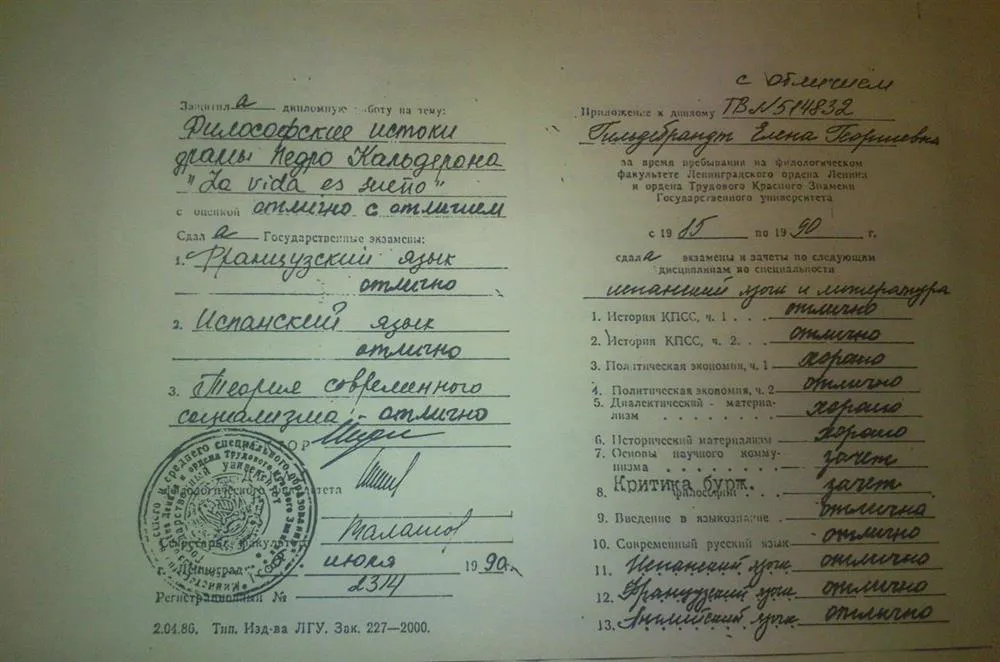 Защитил а дипломную работу на тему:
Философские истоки
драмы Педро Кальдерона
"La vida es sueño"
с оценкой отлично с отличием
Сдал а Государственные экзамены:
1. Французский язык
отлично
2. Испанский язык
отлично
3. Теория современного
социализма - отлично
июля 1990 г.
Регистрационный № 2314
2.04.86. Тип. Изд-ва ЛГУ. Зак. 227—2000.
с отличием
Приложение к диплому ТВ №514832
Гильдебрандт Елена Георгиевна
за время пребывания на филологическом
факультете Ленинградского ордена Ленина
и ордена Трудового Красного Знамени
Государственного университета
с 1985 по 1990 г.
сдала экзамены и зачеты по следующим
дисциплинам по специальности
испанский язык и литература
1. История КПСС, ч. 1 . . . отлично
2. История КПСС, ч. 2. . . отлично
3. Политическая экономия, ч. 1 хорошо
4. Политическая экономия, ч. 2 отлично
5. Диалектический - материа-
лизм . . . . . . . . хорошо
6. Исторический материализм хорошо
7. Основы научного комму-
низма . . . . . . . . зачет
8. Критика бурж. философии зачет
9. Введение в языкознание . отлично
10. Современный русский язык отлично
11. Испанский язык отлично
12. Французский язык отлично
13. Английский язык отлично